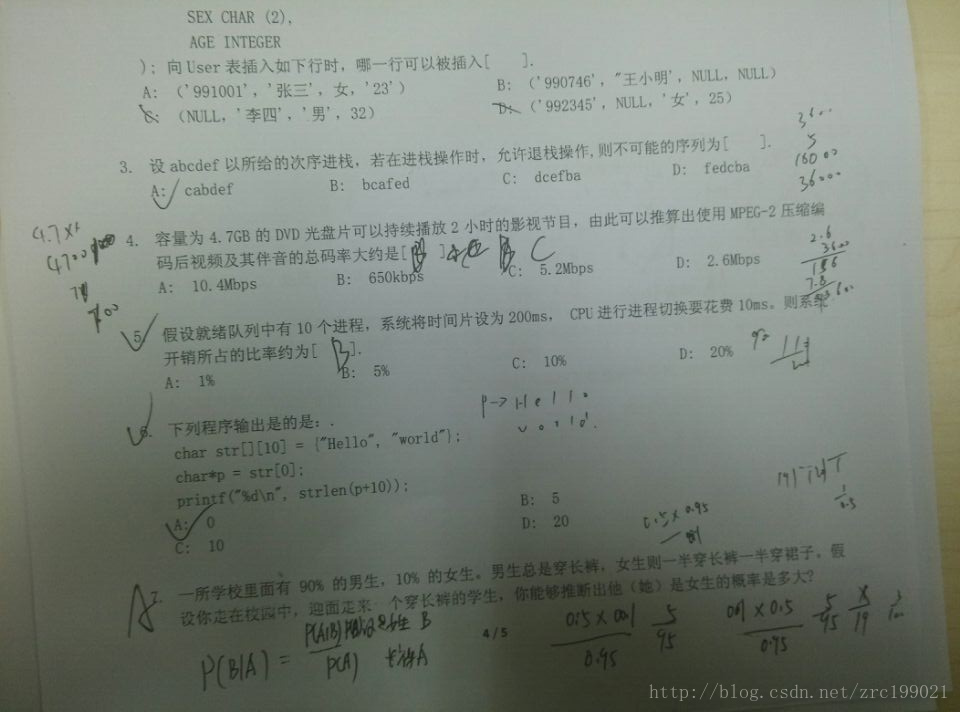 SEX CHAR (2),
AGE INTEGER
); 向 User 表插入如下行时，哪一行可以被插入[ ].
A: （'991001'，'张三'，女，'23'） B: （'990746'，"王小明'，NULL，NULL）
C: （NULL，'李四'，'男'，32） D: （'992345'，NULL，'女'，25）
3. 设 abcdef 以所给的次序进栈，若在进栈操作时，允许退栈操作,则不可能的序列为[ ].
A: cabdef B: bcafed C: dcefba D: fedcba
3600
5
18000
36000
4.7×
4700
4. 容量为 4.7GB 的 DVD 光盘片可以持续播放 2 小时的影视节目，由此可以推算出使用 MPEG-2 压缩编
码后视频及其伴音的总码率大约是[ B ] B C
A: 10.4Mbps B: 650kbps C: 5.2Mbps D: 2.6Mbps
2.6
3600
156
7.8
5. 假设就绪队列中有 10 个进程，系统将时间片设为 200ms， CPU 进行进程切换要花费 10ms。则系统
开销所占的比率约为[ B ].
A: 1% B: 5% C: 10% D: 20%
6. 下列程序输出是的是：.
p→Hello
world
char str[][10] = {"Hello", "world"};
char*p = str[0];
printf("%d\n", strlen(p+10));
A: 0 B: 5
C: 10 D: 20
0.5×0.95
A 7. 一所学校里面有 90% 的男生，10% 的女生。男生总是穿长裤，女生则一半穿长裤一半穿裙子。假
设你走在校园中，迎面走来一个穿长裤的学生，你能够推断出他（她）是女生的概率是多大?
P(B|A) = P(A|B)P(B) / P(A)
女生 B
长裤 A
4 / 5
0.5×0.1 / 0.95
5/95
0.1×0.5 / 0.95
5/95
http://blog.csdn.net/zrc199021